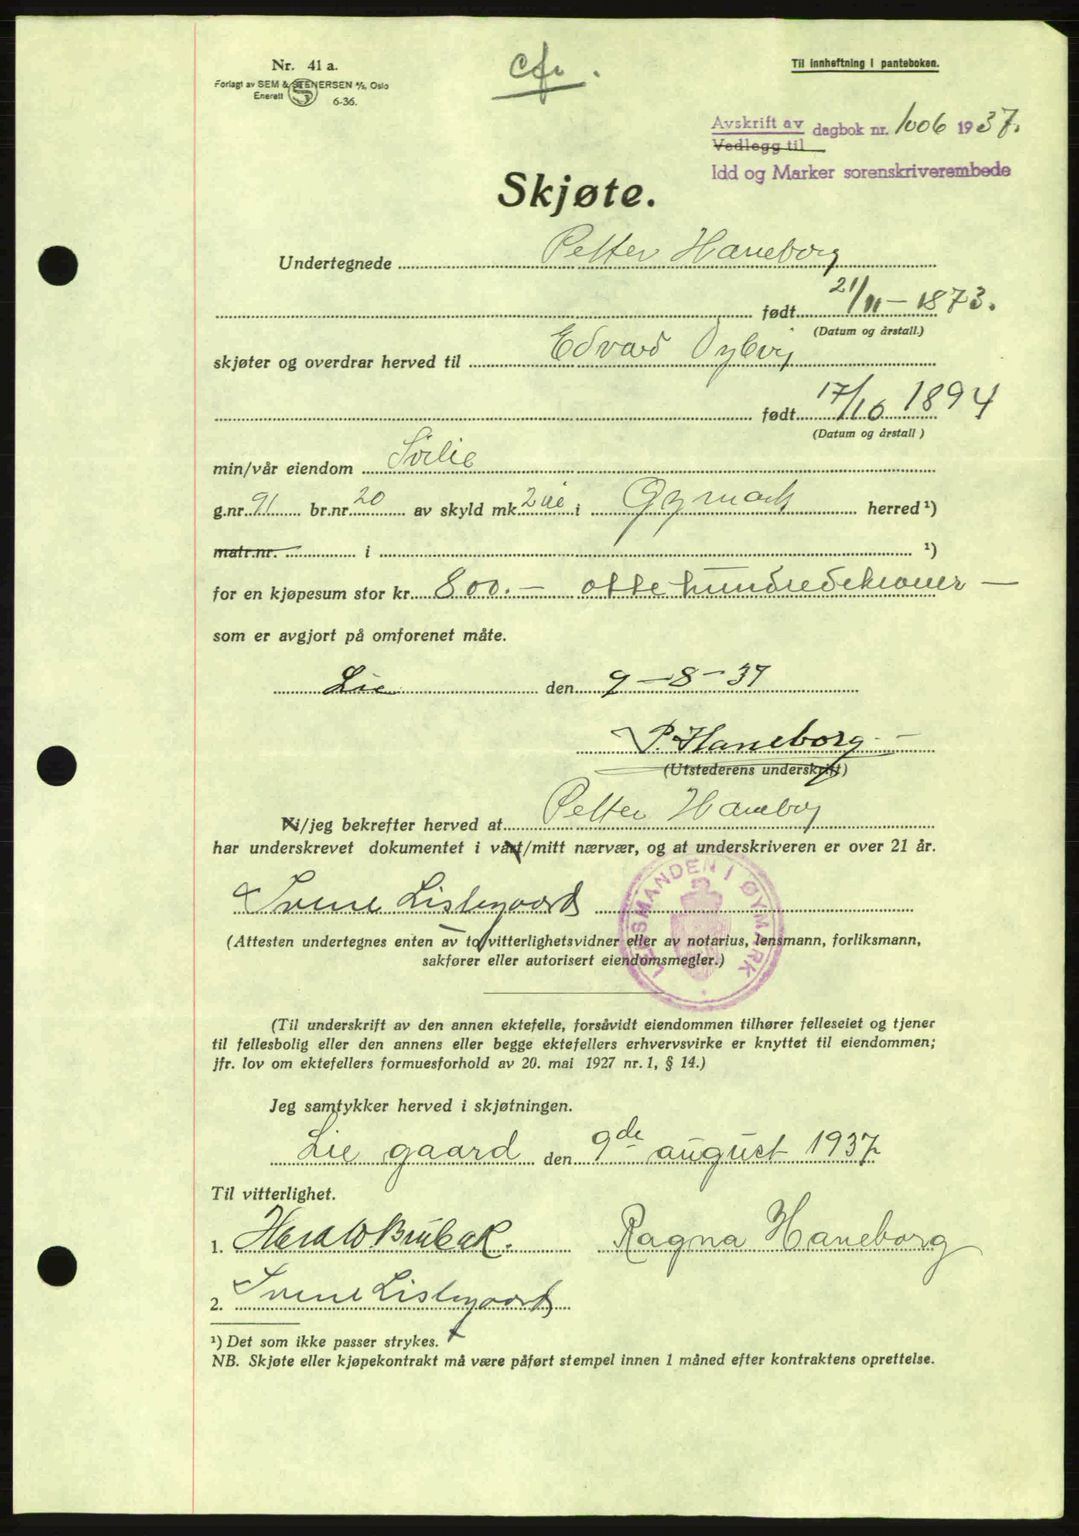 Nr. 41 a.
Forlagt av SEM & STENERSEN A/S, Oslo
Enerett S 6-36.
Til innheftning i panteboken.
Avskrift av
Vedlegg til dagbok nr. 1006 1937.
Idd og Marker sorenskriverembede
Skjøte.
Undertegnede Petter Haneborg
født 21/11 - 1873.
(Datum og årstall.)
skjøter og overdrar herved til Edvard
født 17/10 1894
(Datum og årstall)
min/vår eiendom Sølie
g.nr. 91 br.nr. 20 av skyld mk. i Øymark herred ¹)
matr.nr. i ¹)
for en kjøpesum stor kr. 800.- otte hundredekroner —
som er avgjort på omforenet måte.
Lie den 9-8-37
P. Haneborg
(Utstederens underskrift)
Vi/jeg bekrefter herved at Petter Haneborg
har underskrevet dokumentet i vårt/mitt nærvær, og at underskriveren er over 21 år.
Svene Lislegaard
(Attesten undertegnes enten av to vitterlighetsvidner eller av notarius, lensmann, forliksmann,
sakfører eller autorisert eiendomsmegler.)
LENSMANDEN I ØYMARK
(Til underskrift av den annen ektefelle, forsåvidt eiendommen tilhører felleseiet og tjener
til fellesbolig eller den annens eller begge ektefellers erhvervsvirke er knyttet til eiendommen;
jfr. lov om ektefellers formuesforhold av 20. mai 1927 nr. 1, § 14.)
Jeg samtykker herved i skjøtningen.
Lie gaard den 9de august 1937
Til vitterlighet.
1. Harald Brubak. Ragna Haneborg
2. Svene Lislegaard
¹) Det som ikke passer strykes.
NB. Skjøte eller kjøpekontrakt må være påført stempel innen 1 måned efter kontraktens oprettelse.